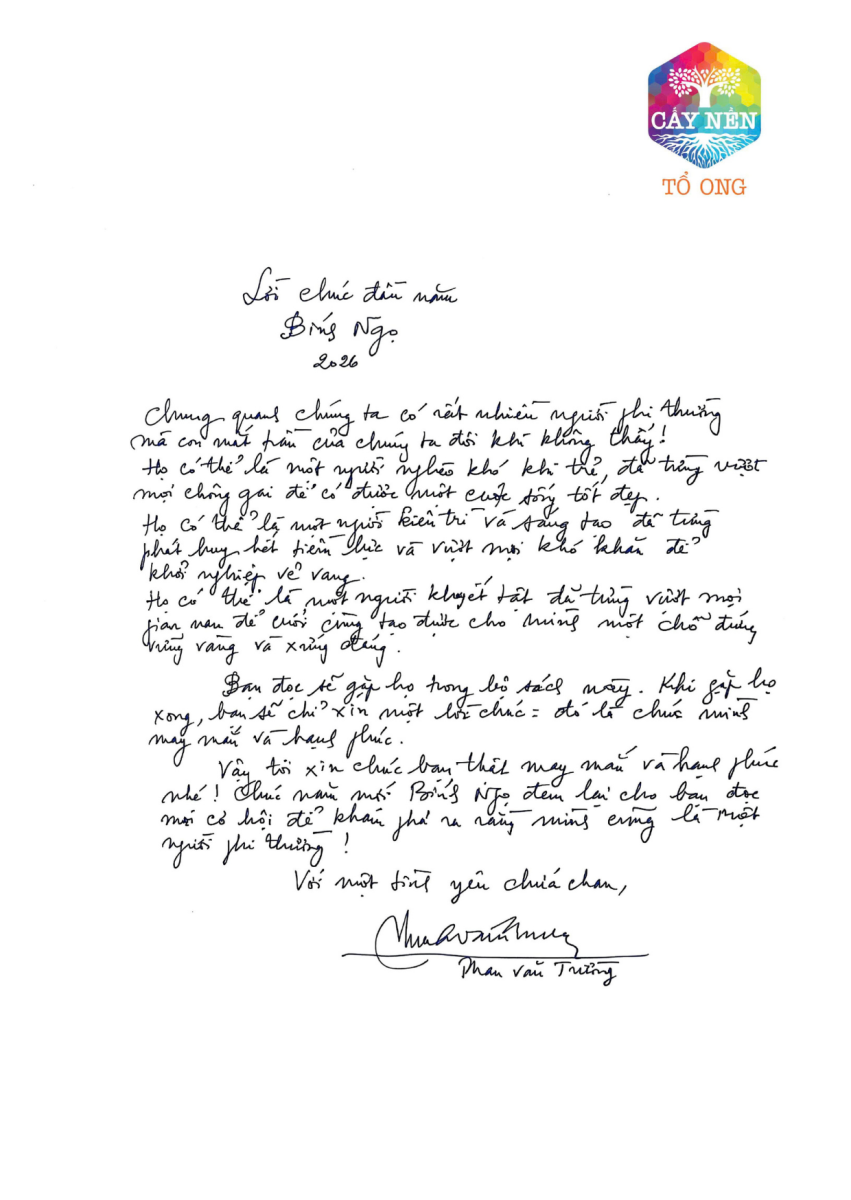 CẤY NỀN
TỔ ONG
Lời chúc đầu năm
Bính Ngọ
2026
Chung quanh chúng ta có rất nhiều người phi thường
mà con mắt trần của chúng ta đôi khi không thấy!
Họ có thể là một người nghèo khó khi trẻ, đã từng vượt
mọi chông gai để có được một cuộc sống tốt đẹp.
Họ có thể là một người kiên trì và sáng tạo đã từng
phát huy hết tiềm lực và vượt mọi khó khăn để
khởi nghiệp vẻ vang.
Họ có thể là một người khuyết tật đã từng vượt mọi
gian nan để cuối cùng tạo được cho mình một chỗ đứng
vững vàng và xứng đáng.
Bạn đọc sẽ gặp họ trong bộ sách này. Khi gặp họ
xong, bạn sẽ chỉ xin một lời chúc = đó là chúc mình
may mắn và hạnh phúc.
Vậy tôi xin chúc bạn thật may mắn và hạnh phúc
nhé! Chúc năm mới Bính Ngọ đem lại cho bạn đọc
mọi cơ hội để khám phá ra rằng mình cũng là một
người phi thường!
Với một tình yêu chứa chan,
Phan Văn Trường